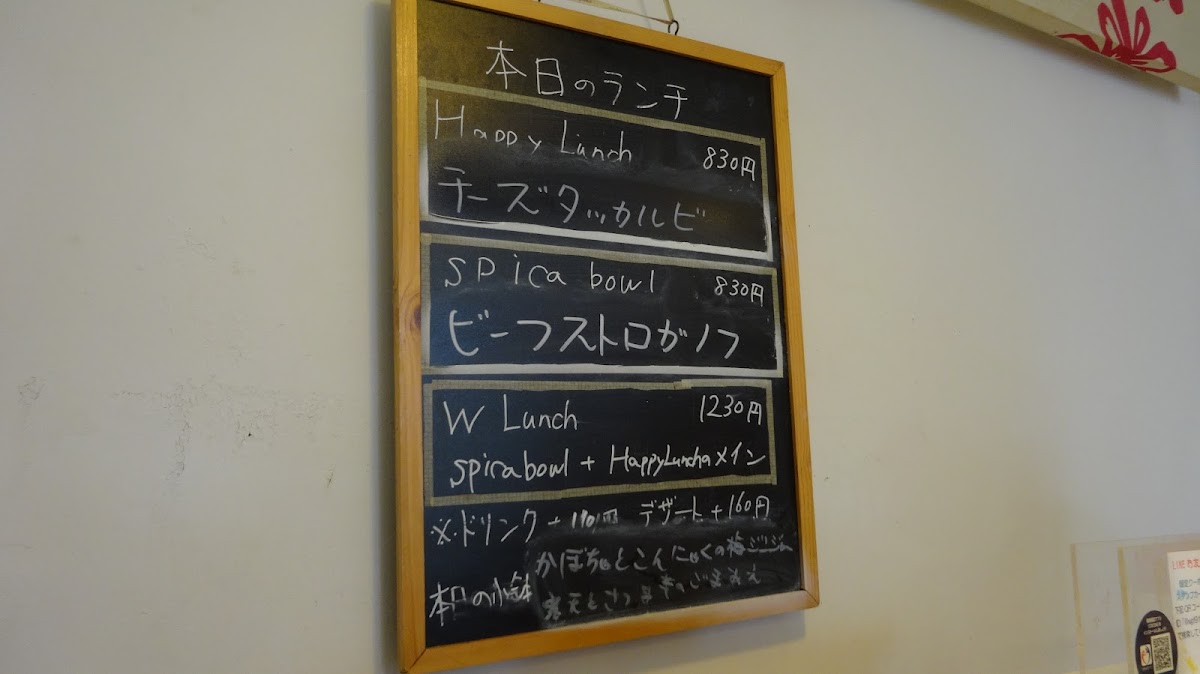 本日のランチ
Happy Lunch 830円
チーズタッカルビ
spica bowl 830円
ビーフストロガノフ
W Lunch 1230円
spicabowl + HappyLunchのメイン
※ドリンク + 110円 デザート + 160円
本日の小鉢 かぼちゃとこんにゃくの
寒天と のごまみそ
LINE